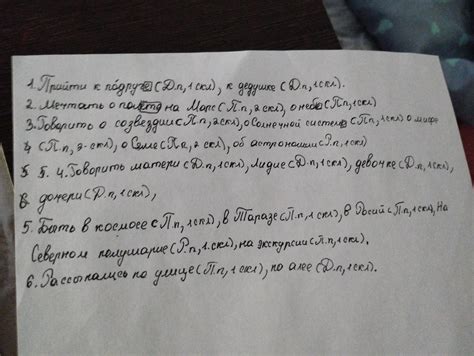 1. Прийти к подруге (Д.п, 1 скл), к дедушке (Д.п, 1 скл).
2. Мечтать о на Марс (П.п, 2 скл), о небе (П.п, 1 скл)
3. Говорить о созвездии (П.п, 2 скл), о Солнечной системе (П.п, 1 скл) о мифе
(П.п, 2 скл), о (П.п, 2 скл), об астрономии (Р.п, 1 скл)
4. Говорить матери (Д.п, 1 скл), Лидие (Д.п, 1 скл), девочке (Д.п, 1 скл),
дочери (Д.п, 1 скл),
5. Быть в космосе (П.п, 1 скл), в Таразе (П.п, 1 скл), в (П.п, 1 скл), На
Северном полушарие (Р.п, 1. скл), на экскурсии (П.п, 1 скл).
6. Рассыпались по улице (П.п, 1 скл), по алее (Д.п, 1 скл).